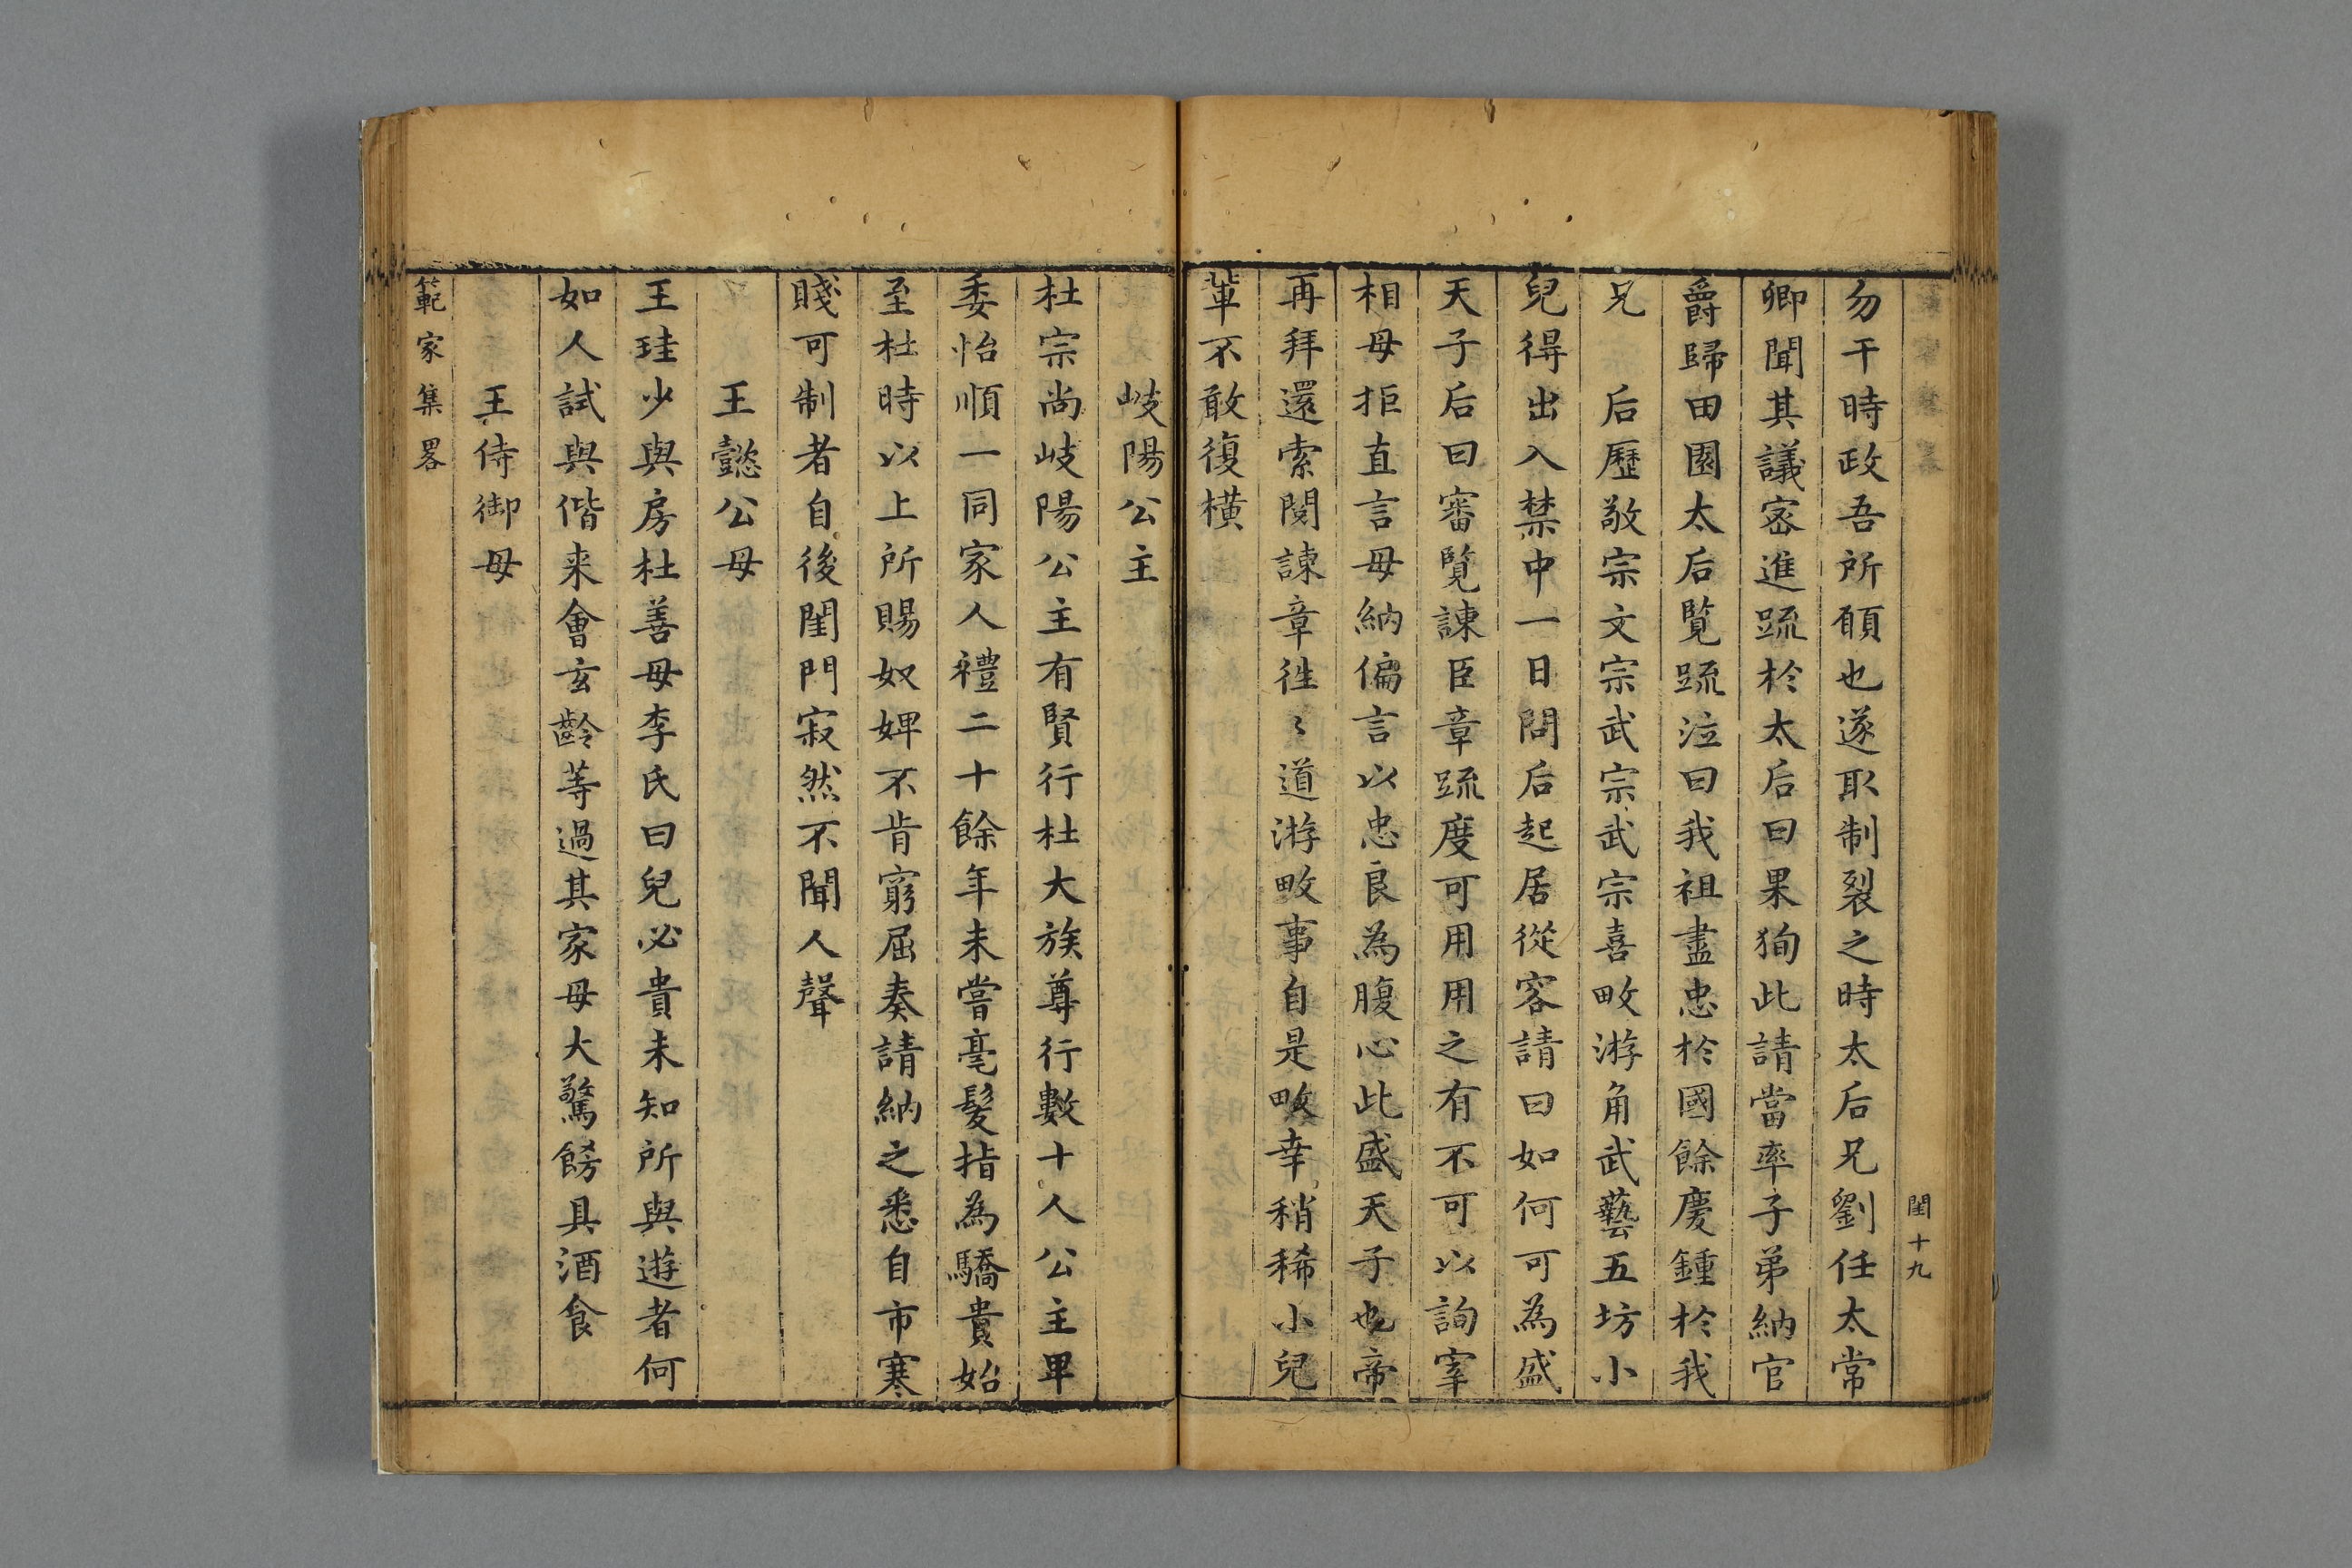 閨十九
勿干時政吾所願也遂取制裂之時太后兄劉任太常
卿聞其議密進䟽於太后曰果狥此請當率子弟納官
爵歸田園太后覧䟽泣曰我祖盡忠於國餘慶鍾於我
兄　后歷敬宗文宗武宗武宗喜畋游角武藝五坊小
兒得出入禁中一日問后起居從容請曰如何可為盛
天子后曰審覧諫臣章䟽度可用用之有不可以詢宰
相毋拒直言毋納偏言以忠良為腹心此盛天子也帝
再拜還索閱諫章徃〻道游畋事自是畋幸稍稀小兒
軰不敢復橫
岐陽公主
杜宗尚岐陽公主有賢行杜大族尊行數十人公主卑
委怡順一同家人禮二十餘年未嘗毫髮指為驕貴始
至杜時以上所賜奴婢不肯窮屈奏請納之悉自市寒
賤可制者自後閨門寂然不聞人聲
王懿公母
王珪少與房杜善母李氏曰兒必貴未知所與遊者何
如人試與偕来會玄齡等過其家母大驚餝具酒食
王侍御母
範家集畧